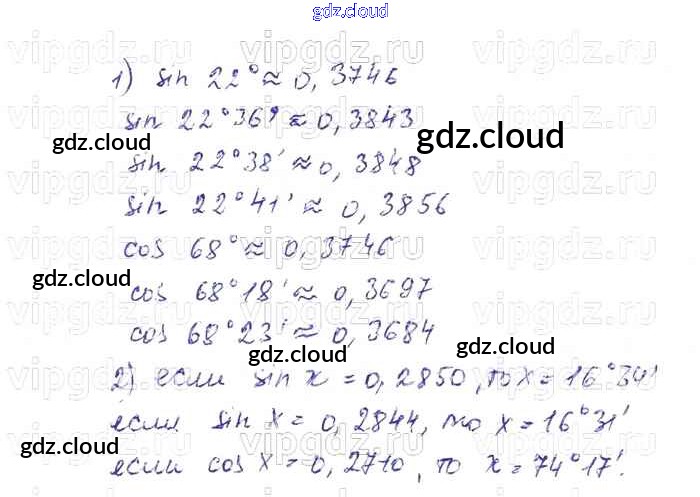 gdz.cloud
1) sin 22° ≈ 0,3746
sin 22°36' ≈ 0,3843
gdz.cloud
gdz.cloud
sin 22°38' ≈ 0,3848
sin 22°41' ≈ 0,3856
cos 68° ≈ 0,3746
gdz.cloud
cos 68°18' ≈ 0,3697
cos 68°23' ≈ 0,3684
gdz.cloud
2) если sin x = 0,2850, то x = 16°34'
если sin x = 0,2844, то x = 16°31'
gdz.cloud
gdz.cloud
если cos x = 0,2710, то x = 74°17'.